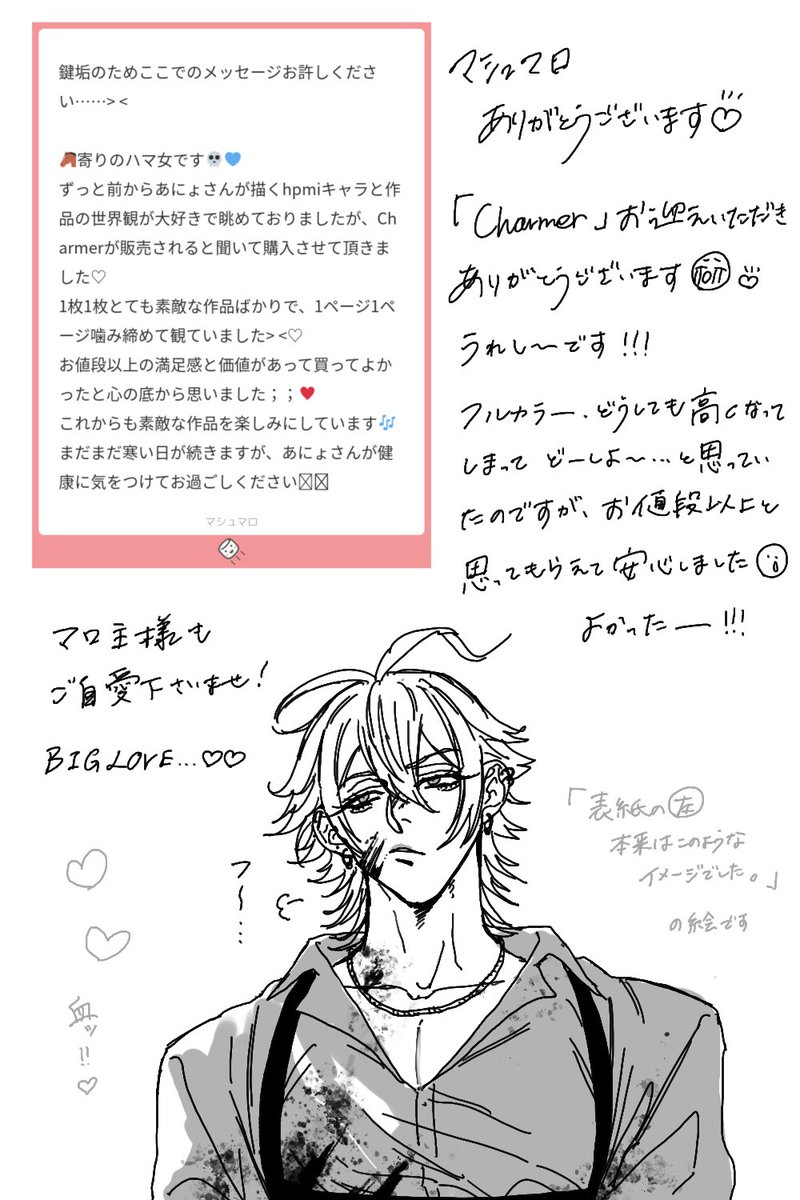 鍵垢のためここでのメッセージお許しくださ
い……> <
🐴寄りのハマ女です💀💙
ずっと前からあにょさんが描くhpmiキャラと作
品の世界観が大好きで眺めておりましたが、Ch
armerが販売されると聞いて購入させて頂きま
した♡
1枚1枚とても素敵な作品ばかりで、1ページ1ペ
ージ噛み締めて観ていました> <♡
お値段以上の満足感と価値があって買ってよか
ったと心の底から思いました；；♥
これからも素敵な作品を楽しみにしています🎶
まだまだ寒い日が続きますが、あにょさんが健
康に気をつけてお過ごしください
マシュマロ
マシュマロ
ありがとうございます♡
「Charmer」お迎えいただき
ありがとうございます
うれし〜です!!!
フルカラー、どうしても高くなって
しまって どーしよ〜…と思ってい
たのですが、お値段以上と
思ってもらえて安心しました
よかったー!!!
マロ主様も
ご自愛下さいませ!
BIG LOVE…♡♡
「表紙の左
本来はこのような
イメージでした。」
の絵です
フ〜…
血ッ!!♡